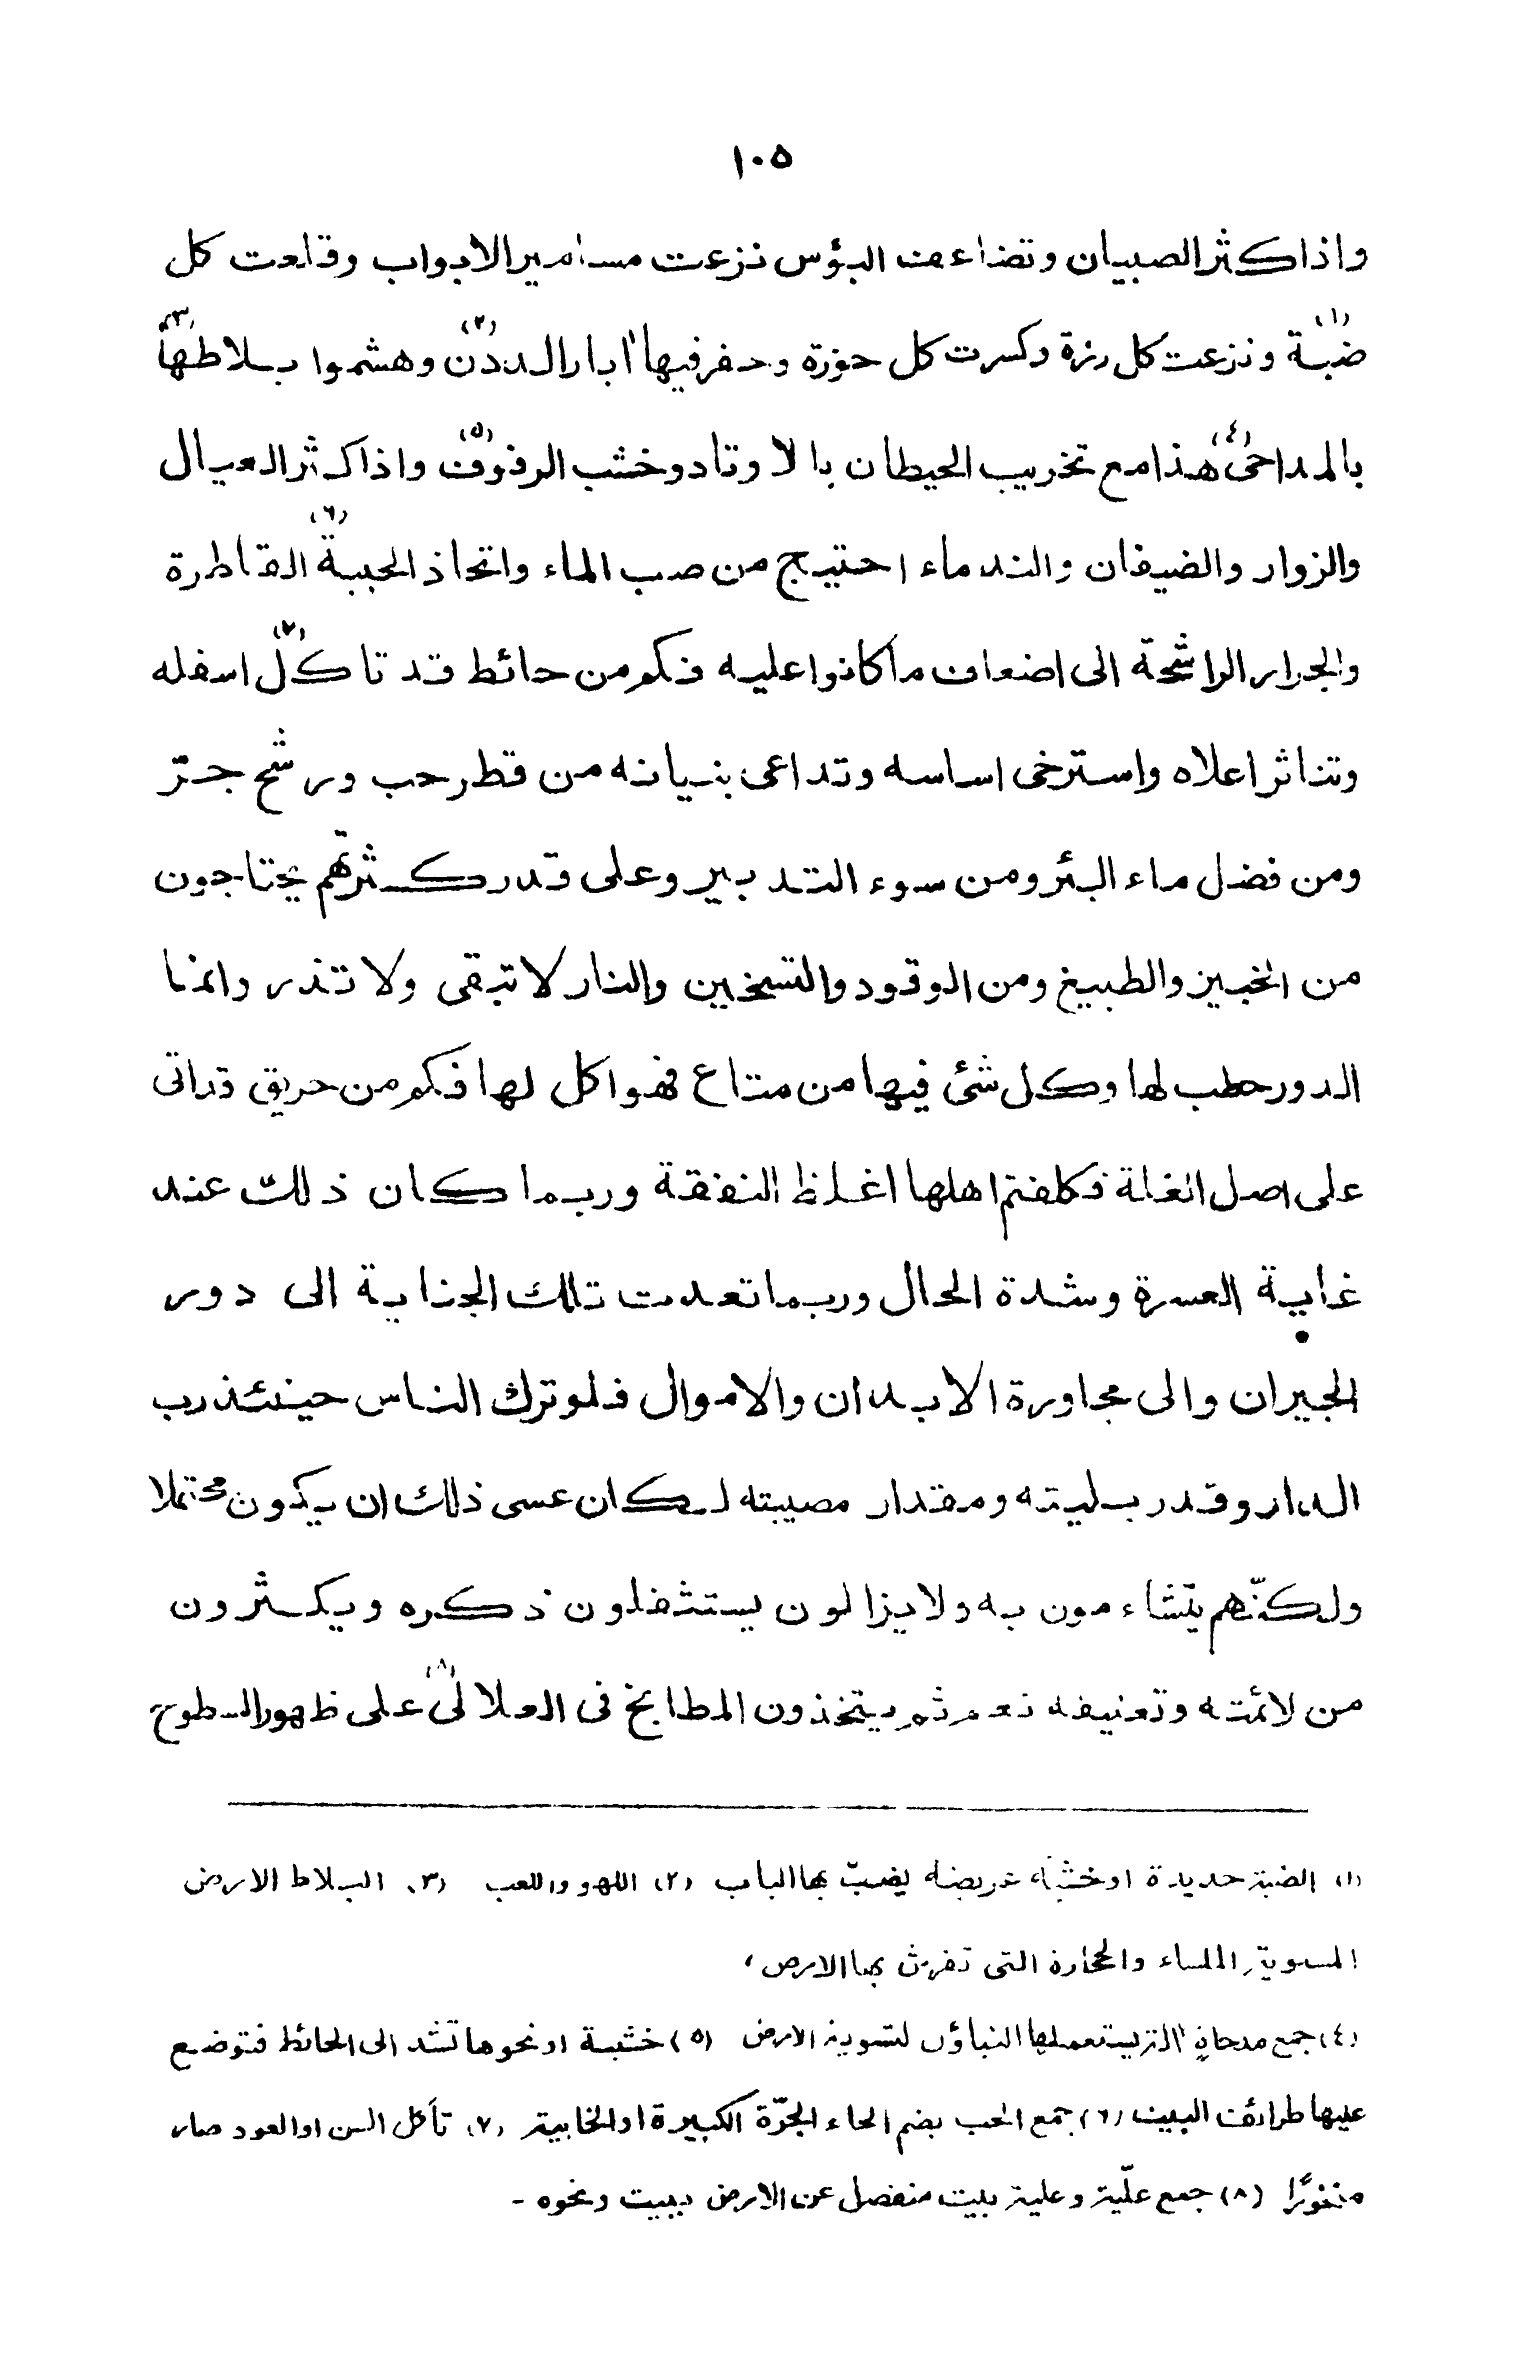 ١٠٥
واذا كثر الصبيان وتضاعف البؤس نزعت مسامير الابواب وقلعت كل
ضبة (١) ونزعت كل رزة وكسرت كل حوزة وحفر فيها ابار الددن (٢) وهشموا بلاطها (٣)
بالمداحى (٤) هذا مع تخريب الحيطان بالاوتاد وخشب الرفوف (٥) واذا كثر العيال
والزوار والضيفان والندماء احتيج من صب الماء واتخاذ الحببة (٦) القاطرة
والجرار الراشحة الى اضعاف ما كانوا عليه فكم من حائط قد تاكّل (٧) اسفله
وتناثر اعلاه واسترخى اساسه وتداعى بنيانه من قطر حب ورشح جرّ
ومن فضل ماء البئر ومن سوء التدبير وعلى قدر كثرتهم يحتاجون
من الخبيز والطبيخ ومن الوقود والتسخين والنار لا تبقى ولا تذر وانما
الدور حطب لها وكل شئ فيها من متاع فهو اكل لها فكم من حريق قد اتى
على اصل الغلة فكلفتم اهلها اغلظ النفقة وربما كان ذلك عند
غاية العسرة وشدة الحال وربما تعدت تلك الجناية الى دور
الجيران والى مجاورة الابدان والاموال فلو ترك الناس حينئذ رب
الدار وقدر بليته ومقدار مصيبته لكان عسى ذلك ان يكون محتملا
ولكنّهم يتشاءمون به ولا يزالون يستثقلون ذكره ويكثرون
من لائمته وتعنيفه نعم ثم يتخذون المطابخ فى العلالى (٨) على ظهور السطوح
(١) الضبة حديدة او خشبة عريضة يضبّ بها الباب (٢) اللهو واللعب (٣) البلاط الارض
المسوية الملساء والحجارة التى تفرش بها الارض،
(٤) جمع مدحاة التى يستعملها البناؤن لتسوية الارض (٥) خشبة او نحوها تشد الى الحائط فتوضع
عليها طرائف البيت (٦) جمع الحب بضم الحاء الجرّة الكبيرة او الخابية (٧) تأكل السن او العود صار
منخورًا (٨) جمع علّية وعلية بيت منفصل عن الارض ببيت ونحوه -